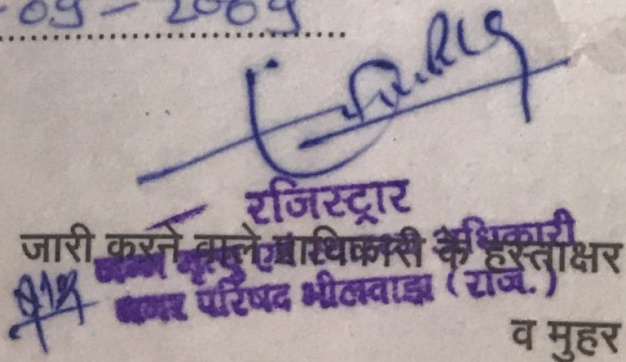 09 - 2009
रजिस्ट्रार
जारी करने वाले प्राधिकारी के हस्ताक्षर
जन्म मृत्यु एवं अधिकारी
नगर परिषद भीलवाड़ा (राज.)
व मुहर